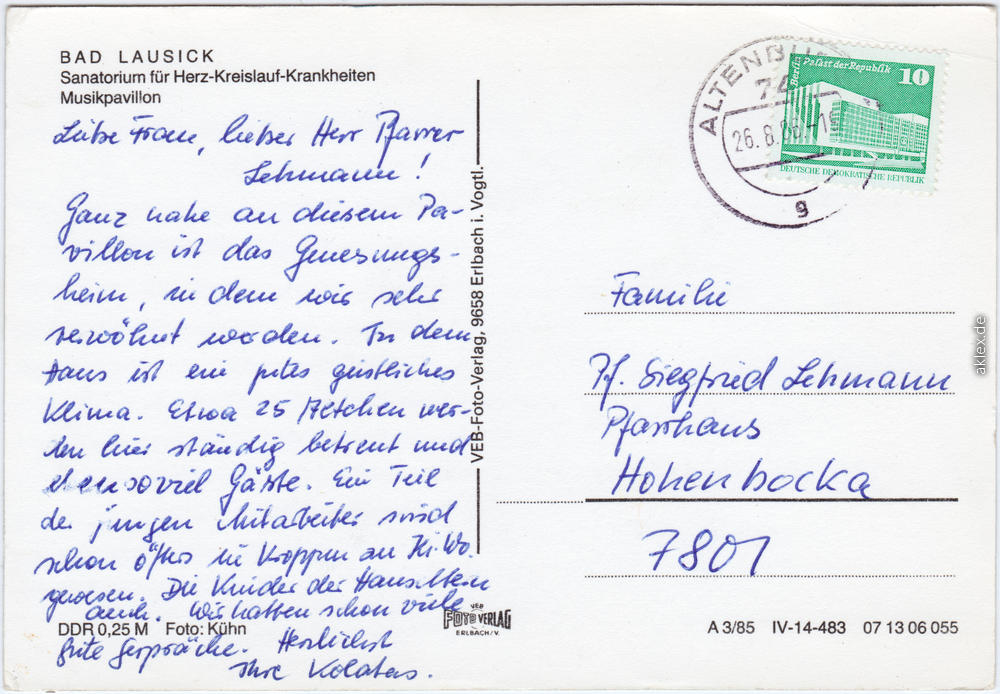 BAD LAUSICK
Sanatorium für Herz-Kreislauf-Krankheiten
Musikpavillon
Liebe Frau, lieber Herr Pfarrer
Lehmann!
Ganz nahe an diesem Pa-
villon ist das Genesungs-
heim, in dem wir sehr
verwöhnt werden. In dem
Haus ist ein gutes geistliches
Klima. Etwa 25 Mädchen wer-
den hier ständig betreut und
ebensoviel Gäste. Ein Teil
der jungen Mitarbeiter sind
schon öfters in Kroppen zu Ki.Wo.
gewesen. Die Kinder der Hauseltern
auch. Wir hatten schon viele
gute Gespräche. Herzlichst
Ihre
DDR 0,25 M Foto: Kühn
VEB-Foto-Verlag, 9658 Erlbach i. Vogtl.
VEB
FOTO VERLAG
ERLBACH/V.
ALTENBURG
74
26.8.86
g
Berlin Palast der Republik
10
DEUTSCHE DEMOKRATISCHE REPUBLIK
Familie
Pf. Siegfried Lehmann
Pfarrhaus
Hohenbocka
7801
A 3/85 IV-14-483 07 13 06 055
aklex.de